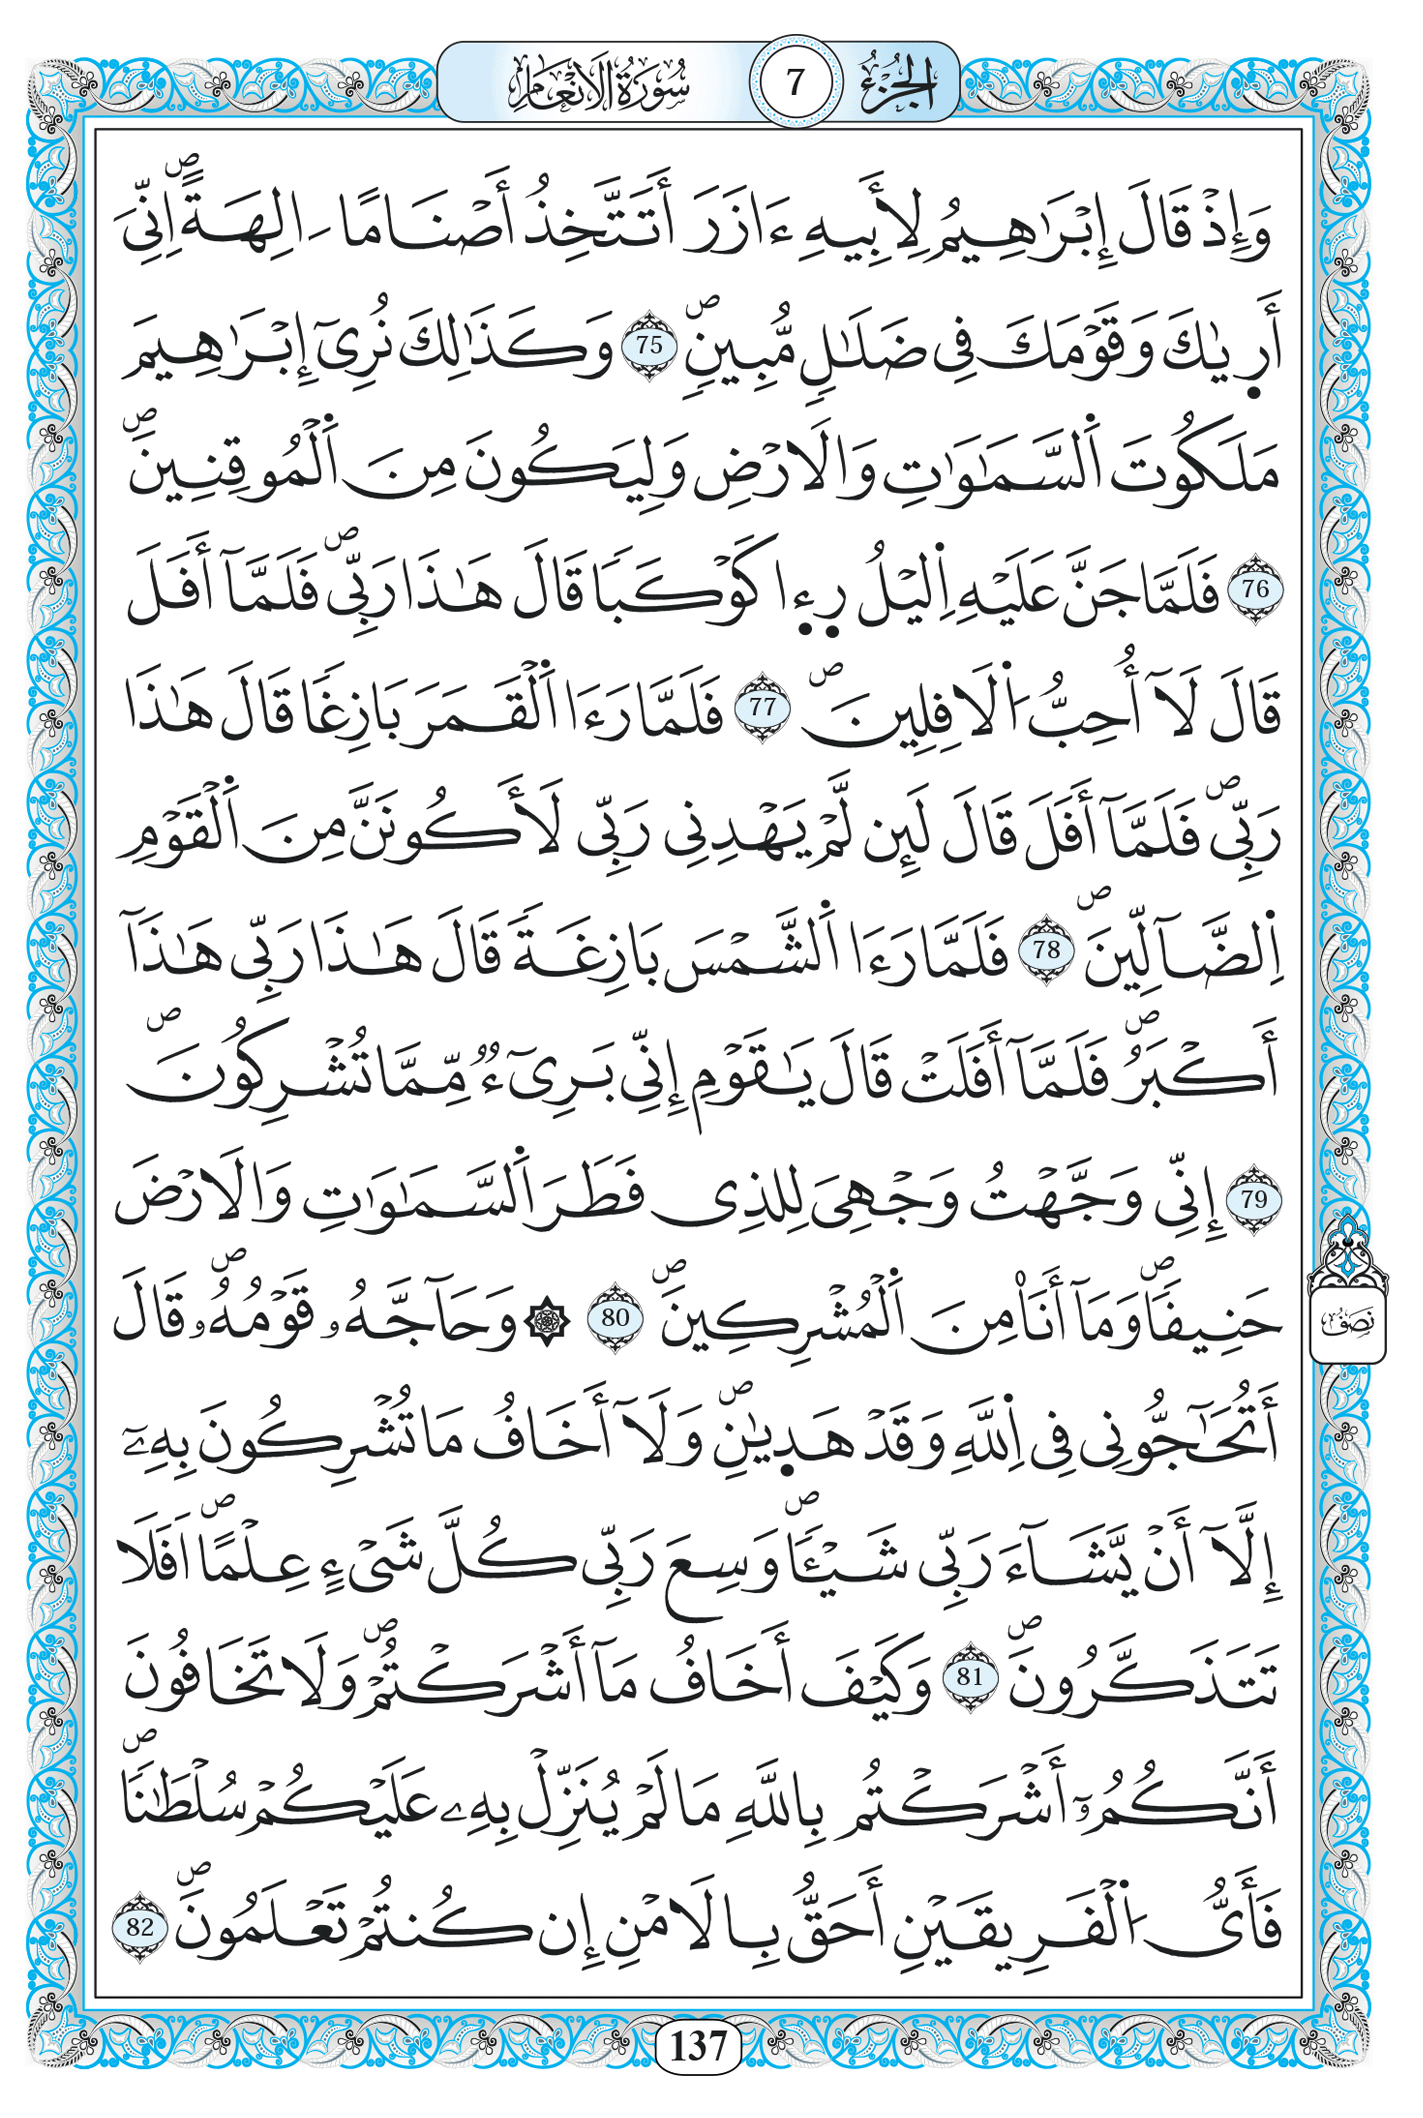 سُورَةُ الَانْعَامِ 7 الجُزْءُ
وَإِذْ قَالَ إِبْرَٰهِيمُ لِأَبِيهِ ءَازَرَ أَتَتَّخِذُ أَصْنَامًا ـِ الِهَةًۖ اِنِّيَ
أَر۪يٰكَ وَقَوْمَكَ فِي ضَلَٰلٖ مُّبِينٖۖ 75 وَكَذَٰلِكَ نُرِيٓ إِبْرَٰهِيمَ
مَلَكُوتَ اَ۬لسَّمَٰوَٰتِ وَالَارْضِ وَلِيَكُونَ مِنَ اَ۬لْمُوقِنِينَۖ
76 فَلَمَّا جَنَّ عَلَيْهِ اِ۬ليْلُ ر۪ء۪ا كَوْكَبًا قَالَ هَٰذَا رَبِّيۖ فَلَمَّآ أَفَلَ
قَالَ لَآ أُحِبُّ اُ۬لَافِلِينَۖ 77 فَلَمَّا رَءَا اَ۬لْقَمَرَ بَازِغًا قَالَ هَٰذَا
رَبِّيۖ فَلَمَّآ أَفَلَ قَالَ لَئِن لَّمْ يَهْدِنِي رَبِّي لَأَكُونَنَّ مِنَ اَ۬لْقَوْمِ
اِ۬لضَّآلِّينَۖ 78 فَلَمَّا رَءَا اَ۬لشَّمْسَ بَازِغَةً قَالَ هَٰذَا رَبِّي هَٰذَآ
أَكْبَرُۖ فَلَمَّآ أَفَلَتْ قَالَ يَٰقَوْمِ إِنِّي بَرِيٓءٞ مِّمَّا تُشْرِكُونَۖ
79 إِنِّي وَجَّهْتُ وَجْهِيَ لِلذِي فَطَرَ اَ۬لسَّمَٰوَٰتِ وَالَارْضَ
حَنِيفًاۖ وَمَآ أَنَا۠ مِنَ اَ۬لْمُشْرِكِينَۖ 80 ۞ وَحَآجَّهُۥ قَوْمُهُۥۖ قَالَ
نِصْفُ
أَتُحَٰٓجُّونِي فِي اِ۬للَّهِ وَقَدْ هَد۪يٰنِۖ وَلَآ أَخَافُ مَا تُشْرِكُونَ بِهِۦٓ
إِلَّآ أَنْ يَّشَآءَ رَبِّي شَيْـًٔاۖ وَسِعَ رَبِّي كُلَّ شَيْءٍ عِلْمًاۖ اَفَلَا
تَتَذَكَّرُونَۖ 81 وَكَيْفَ أَخَافُ مَآ أَشْرَكْتُمْۖ وَلَا تَخَافُونَ
أَنَّكُمُۥٓ أَشْرَكْتُم بِاللَّهِ مَا لَمْ يُنَزِّلْ بِهِۦ عَلَيْكُمْ سُلْطَٰنًاۖ
فَأَيُّ اُ۬لْفَرِيقَيْنِ أَحَقُّ بِالَامْنِ إِن كُنتُمْ تَعْلَمُونَۖ 82
137